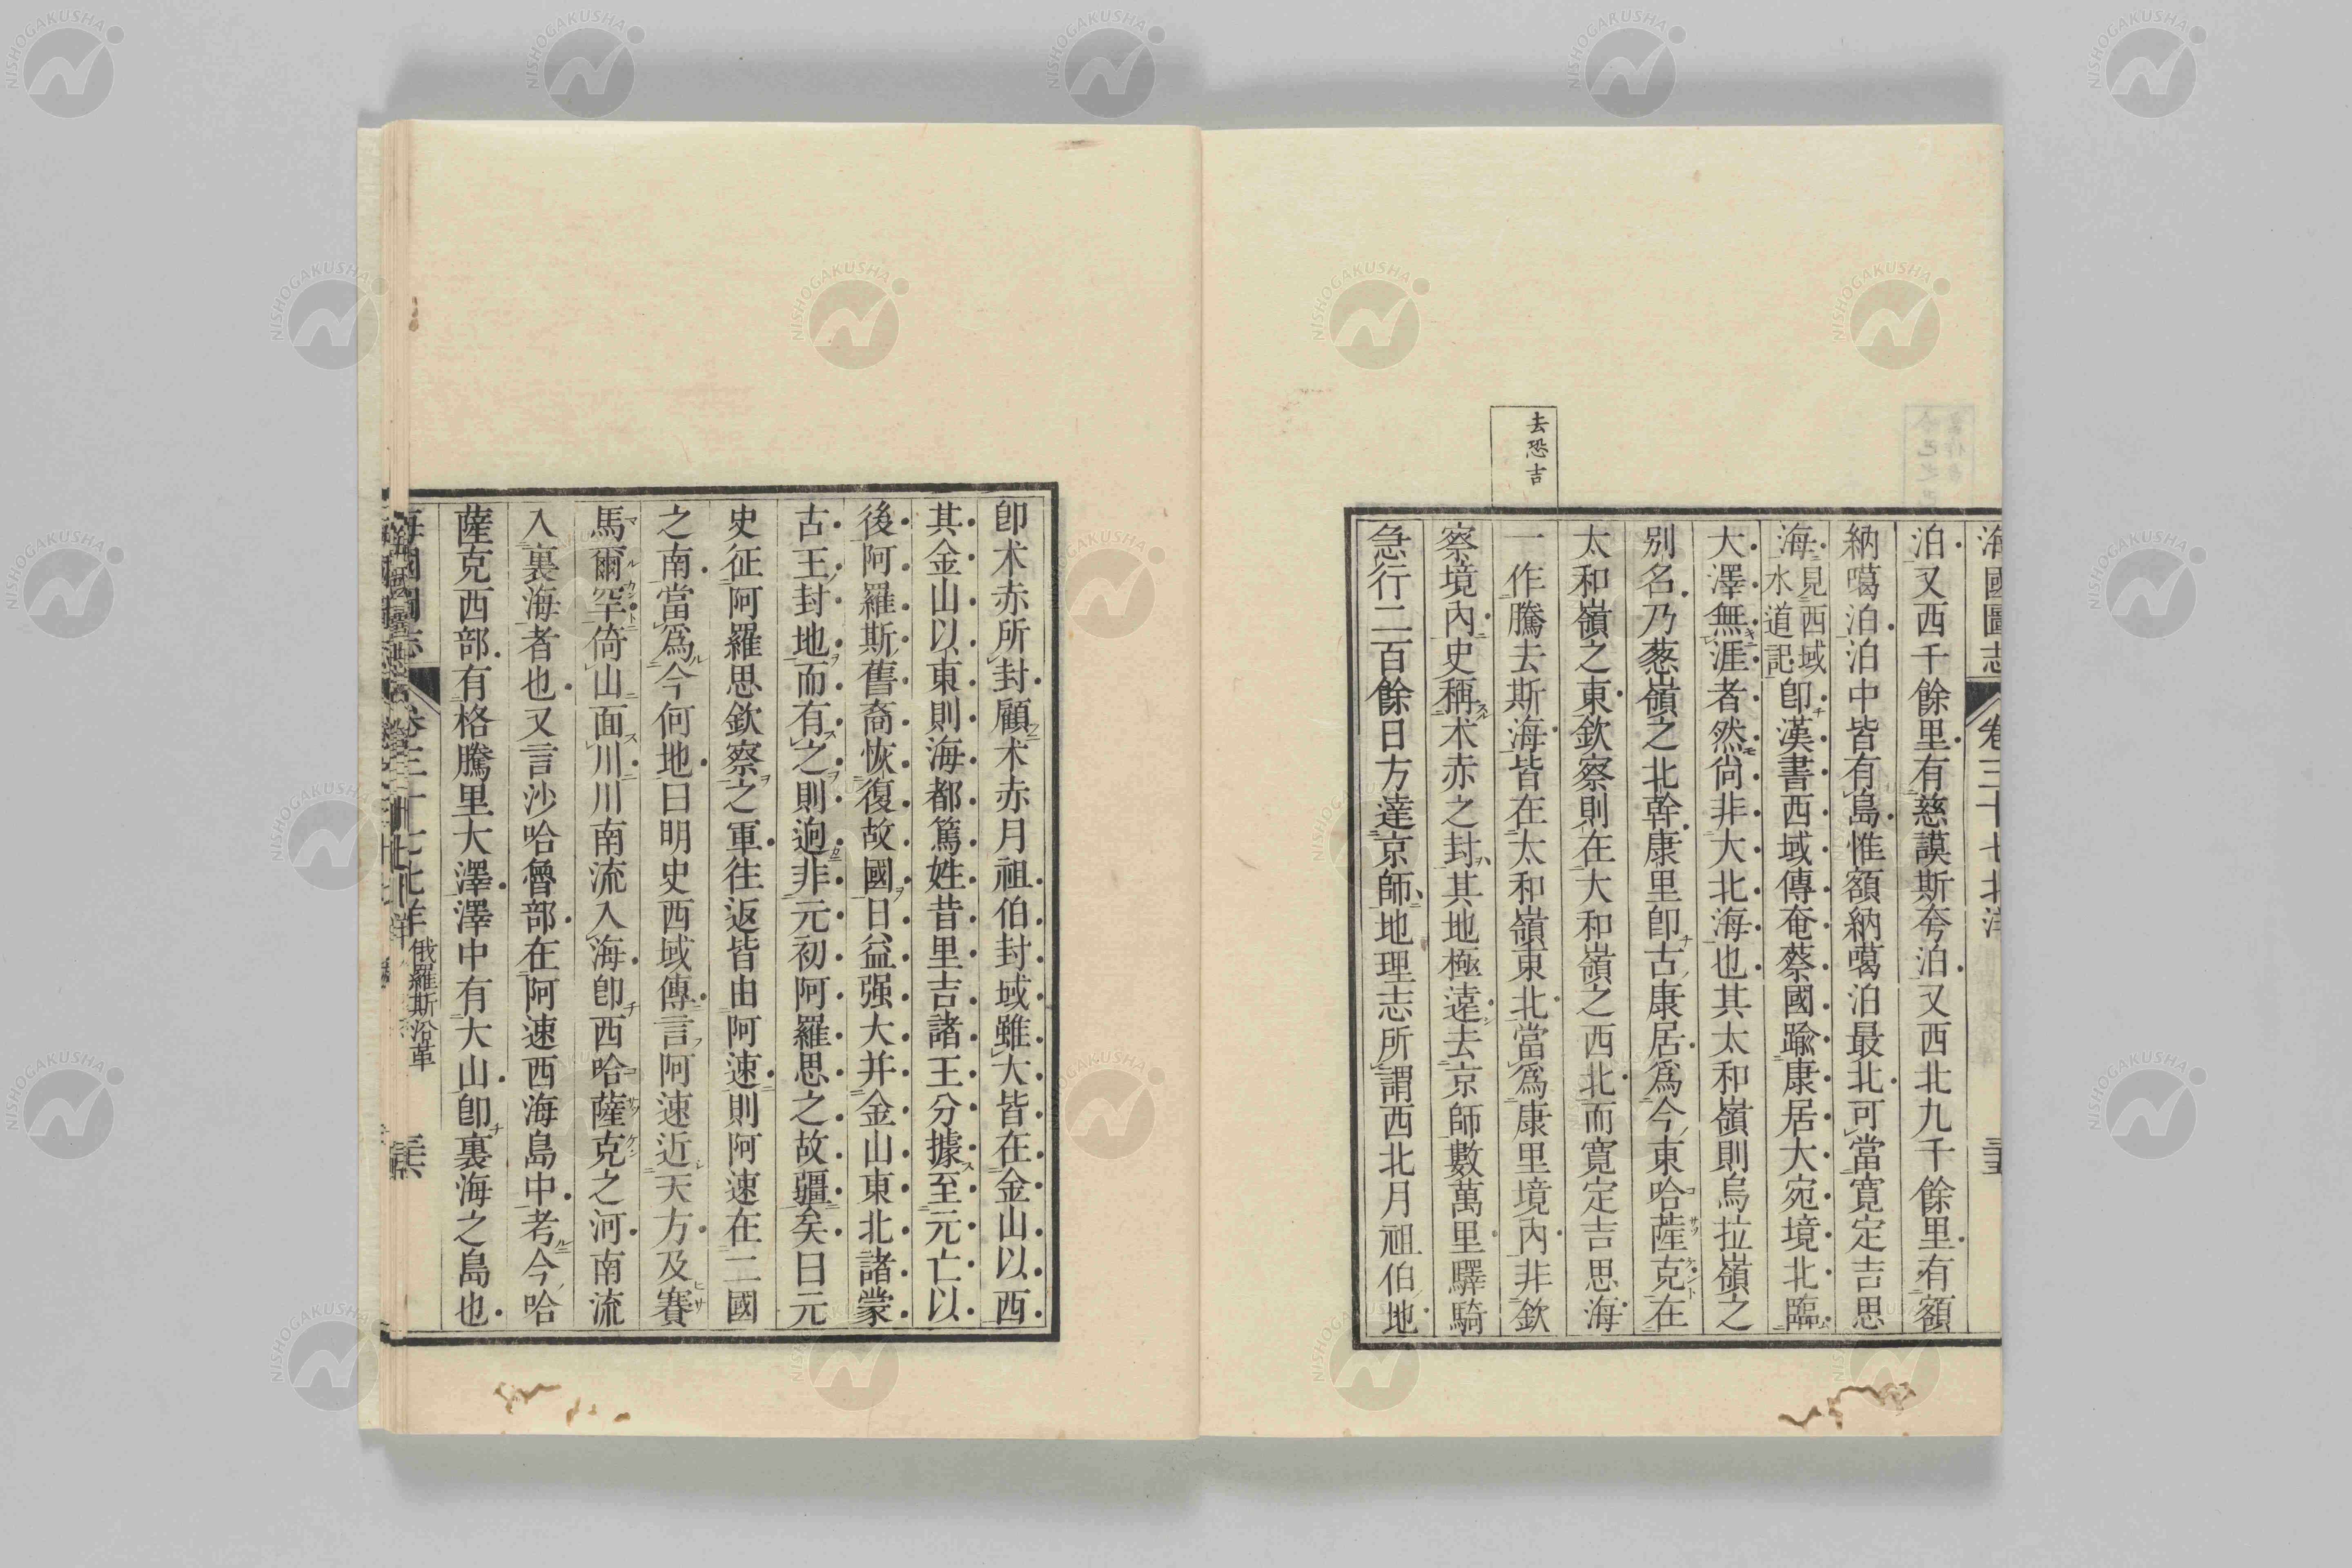 海國圖志 卷三十七 北洋
泊又西千餘里有慈謨斯夸泊又西北九千餘里有額
納噶泊泊中皆有島惟額納噶泊最北可當寬定吉思
海見西域水道記卽漢書西域傳奄蔡國踰康居大宛境北臨
大澤無涯者然尚非大北海也其太和嶺則烏拉嶺之
别名乃葱嶺之北幹康里卽古康居爲今東哈薩克在
太和嶺之東欽察則在大和嶺之西北而寬定吉思海
一作騰去斯海皆在太和嶺東北當爲康里境內非欽
察境內史稱朮赤之封其地極遠去京師數萬里驛騎
急行二百餘日方達京師地理志所謂西北月祖伯地
去恐吉
卽朮赤所封顧朮赤月祖伯封域雖大皆在金山以西
其金山以東則海都篤姓昔里吉諸王分據至元亡以
後阿羅斯舊裔恢復故國日益强大并金山東北諸蒙
古王封地而有之則逈非元初阿羅思之故疆矣曰元
史征阿羅思欽察之軍往返皆由阿速則阿速在二國
之南當爲今何地曰明史西域傳言阿速近天方及賽
馬爾罕倚山面川川南流入海卽西哈薩克之河南流
入裏海者也又言沙哈魯部在阿速西海島中考今哈
薩克西部有格騰里大澤澤中有大山卽裏海之島也
俄羅斯沿革
NISHOGAKUSHA